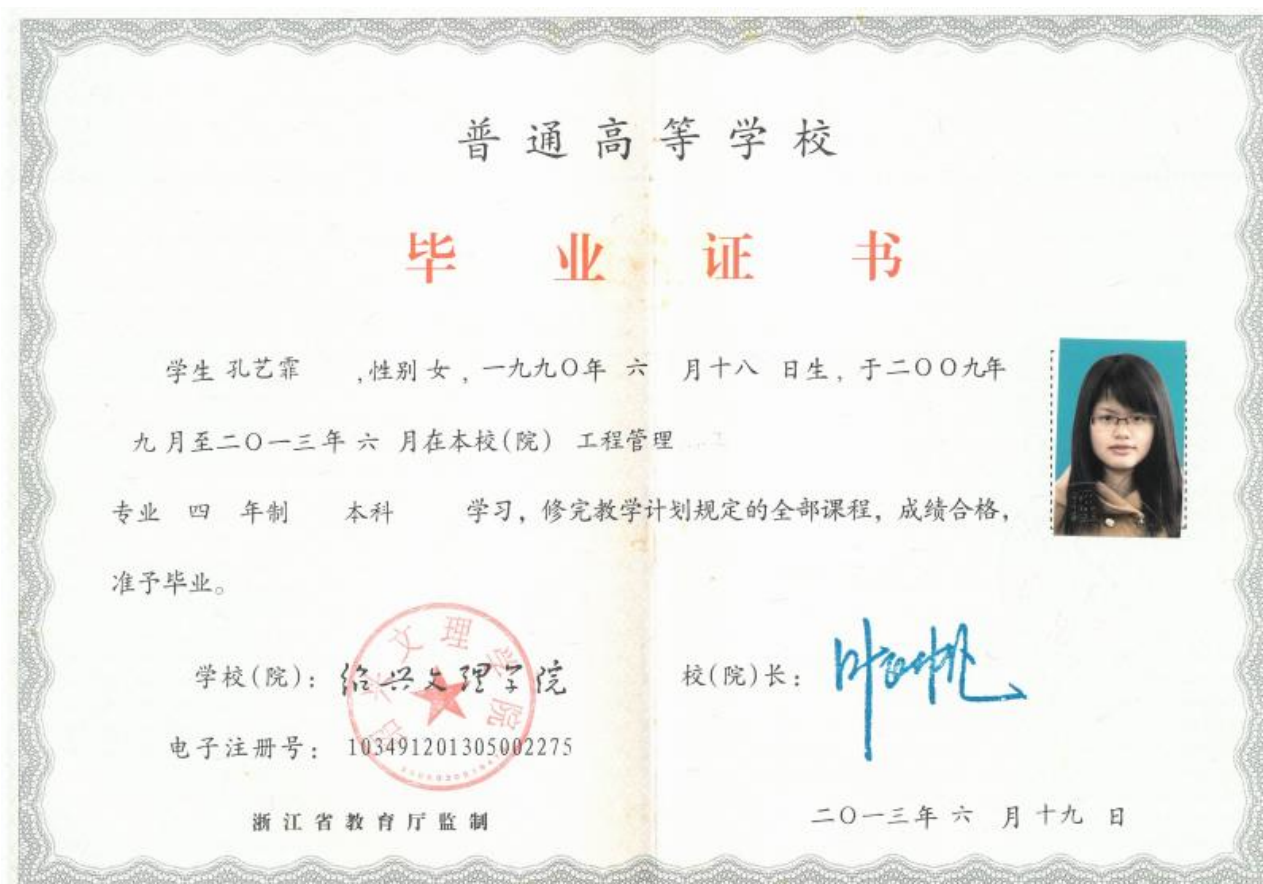 普通高等学校
毕业证书
学生 孔艺霏 ,性别 女 , 一九九〇年 六 月十八 日生, 于二〇〇九年
九 月至二〇一三年 六 月在本校(院) 工程管理
专业 四 年制 本科 学习, 修完教学计划规定的全部课程, 成绩合格,
准予毕业。
学校(院): 绍兴文理学院
绍兴文理学院
校(院)长:
电子注册号: 103491201305002275
浙江省教育厅监制
二〇一三年 六 月 十九 日